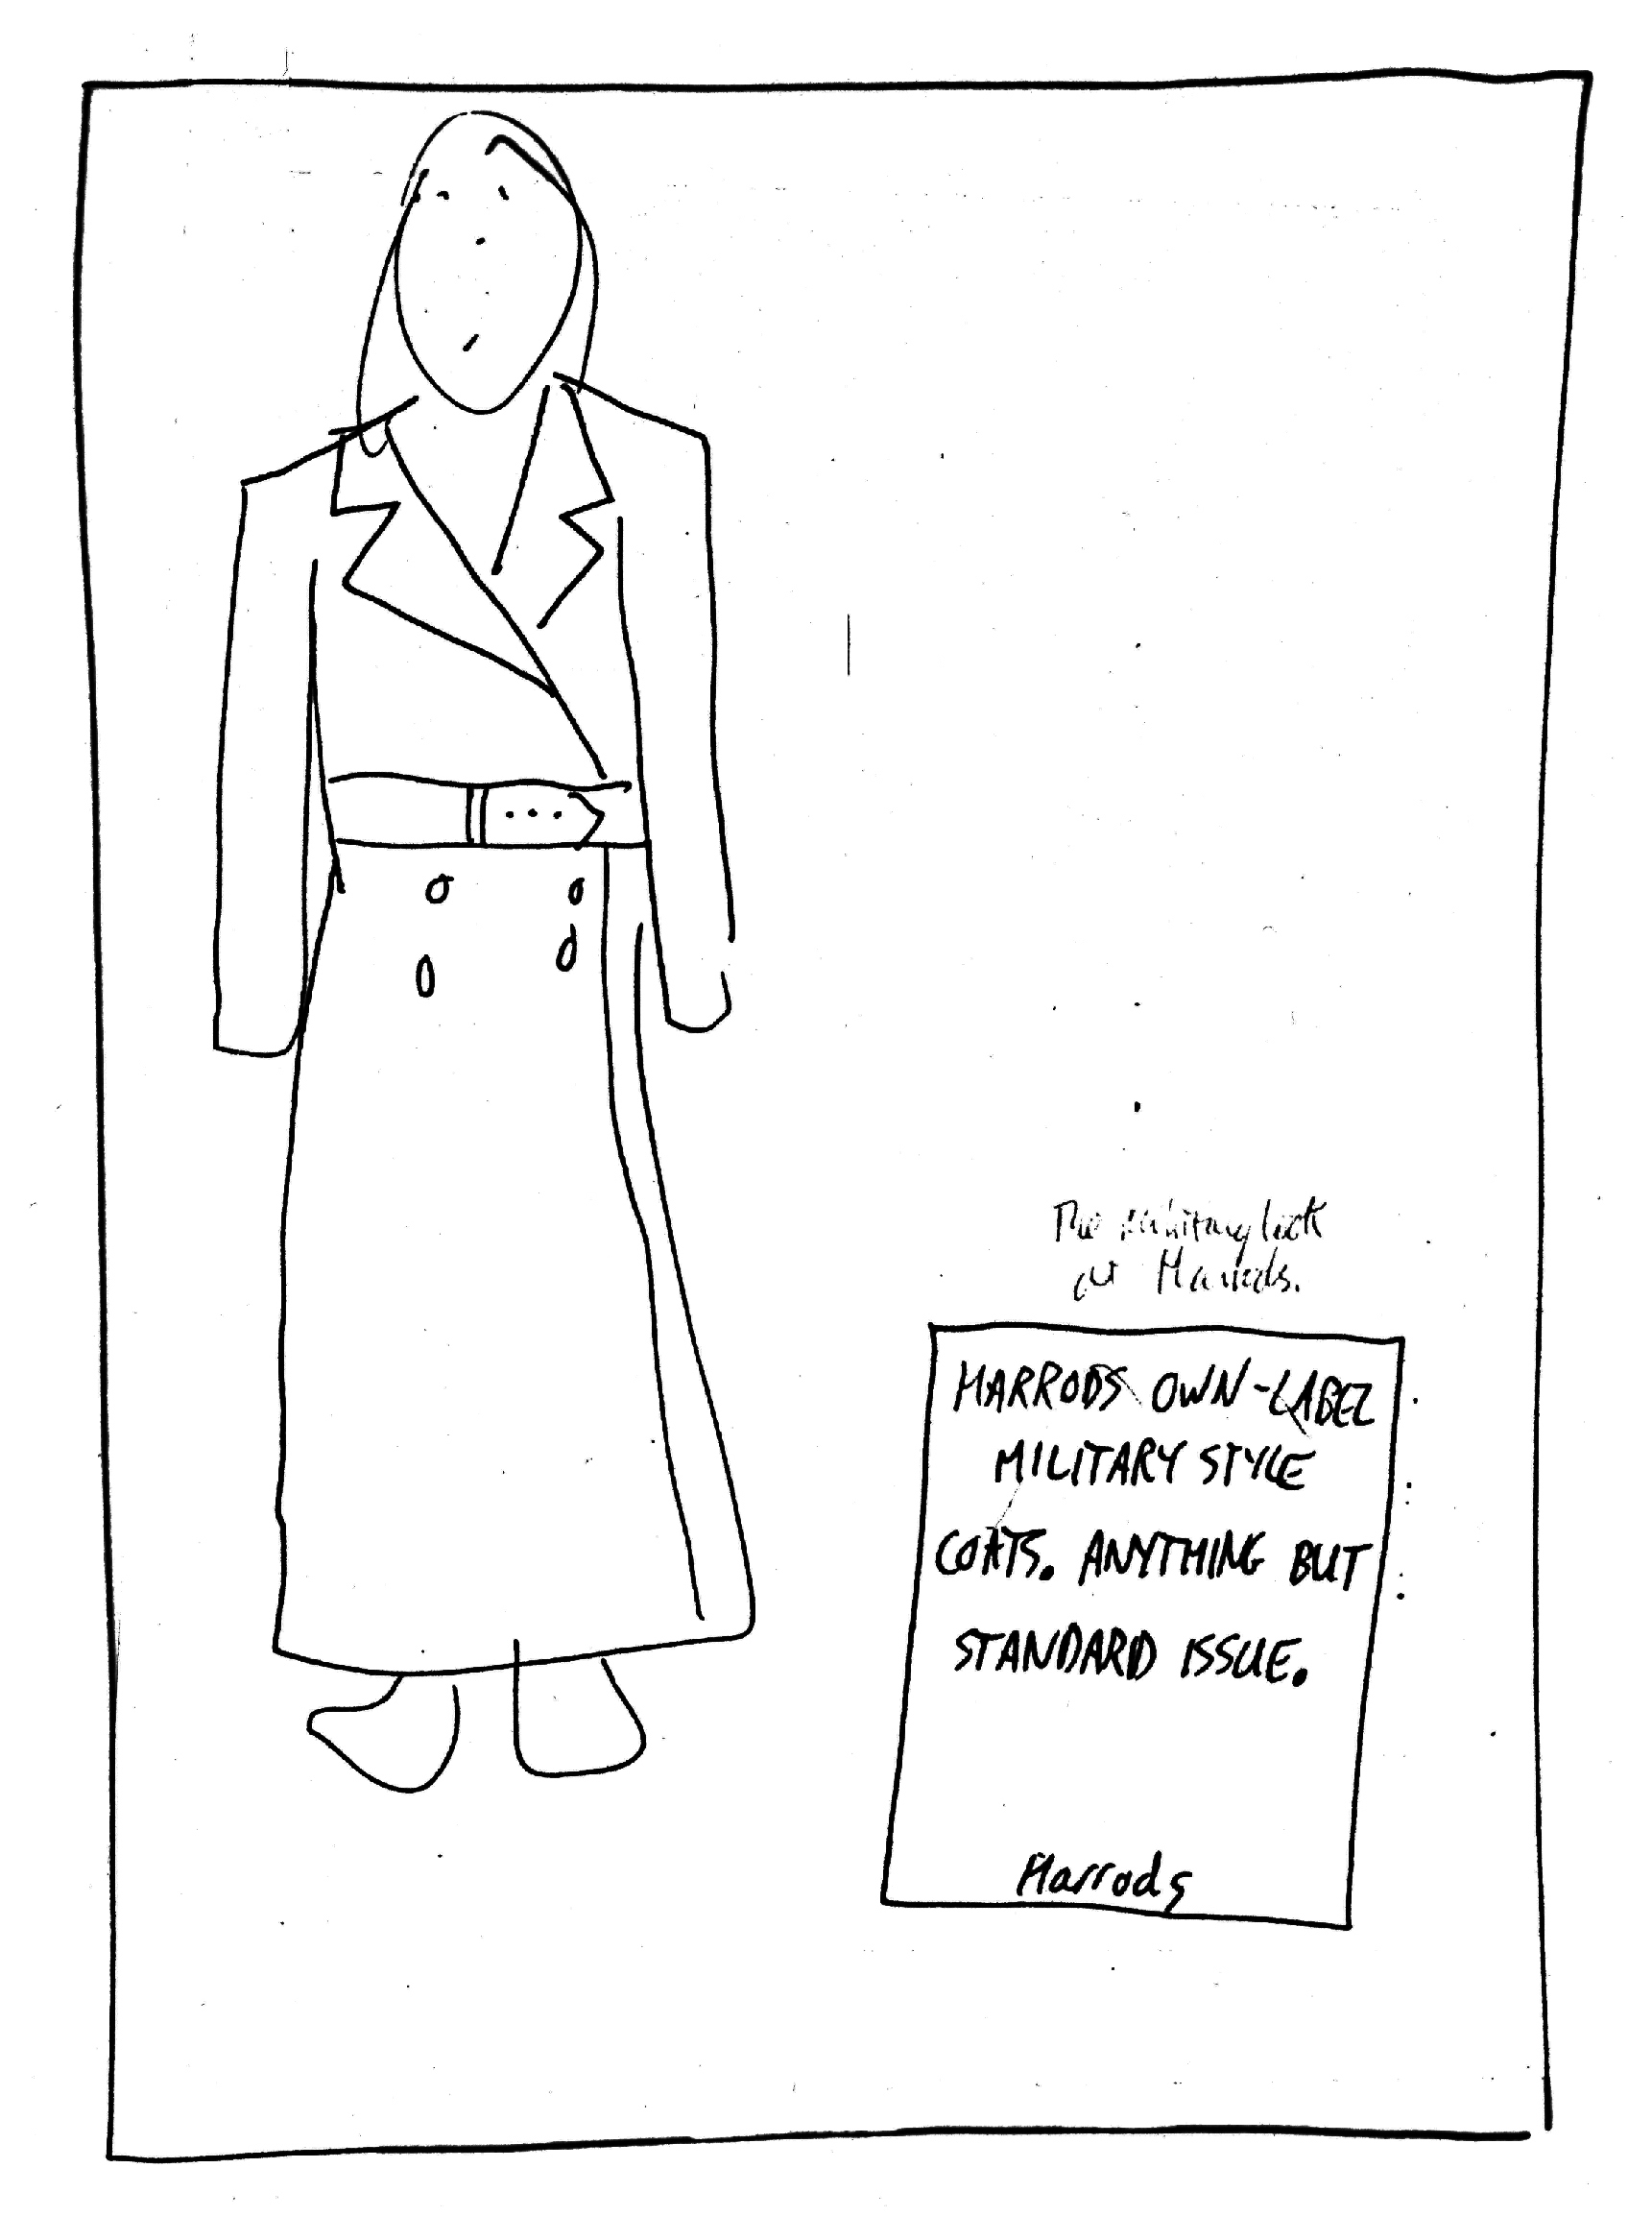 The military look
at Harrods.
HARRODS OWN-LABEL
MILITARY STYLE
COATS. ANYTHING BUT
STANDARD ISSUE.
Harrods